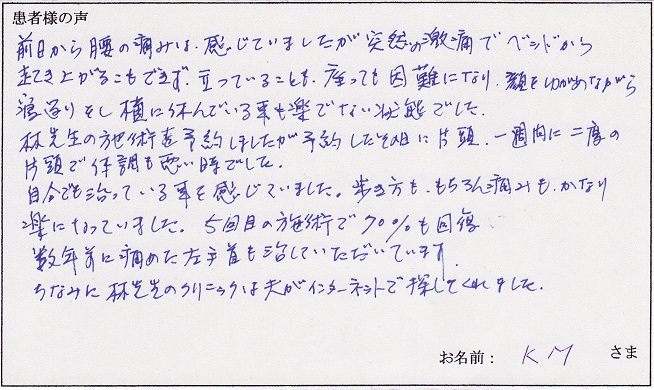 患者様の声
前日から腰の痛みは、感じていましたが突然の激痛でベンドから
起き上がることもできず、立っていることも、座っても困難になり、顔をゆがめながら
寝返りをし横に休んでいる事も楽でない状態でした。
林先生の施術を予約しましたが予約したその日に片頭、一週間に二度の
片頭で体調も悪い時でした。
自分でも治っている事を感じていました。歩き方も、もちろん痛みも、かなり
楽になっていました。5回目の施術で70%も回復
数年前に痛めた左手首も治していただいています。
ちなみに林先生のクリニックは夫がインターネットで探してくれました。
お名前： KM さま